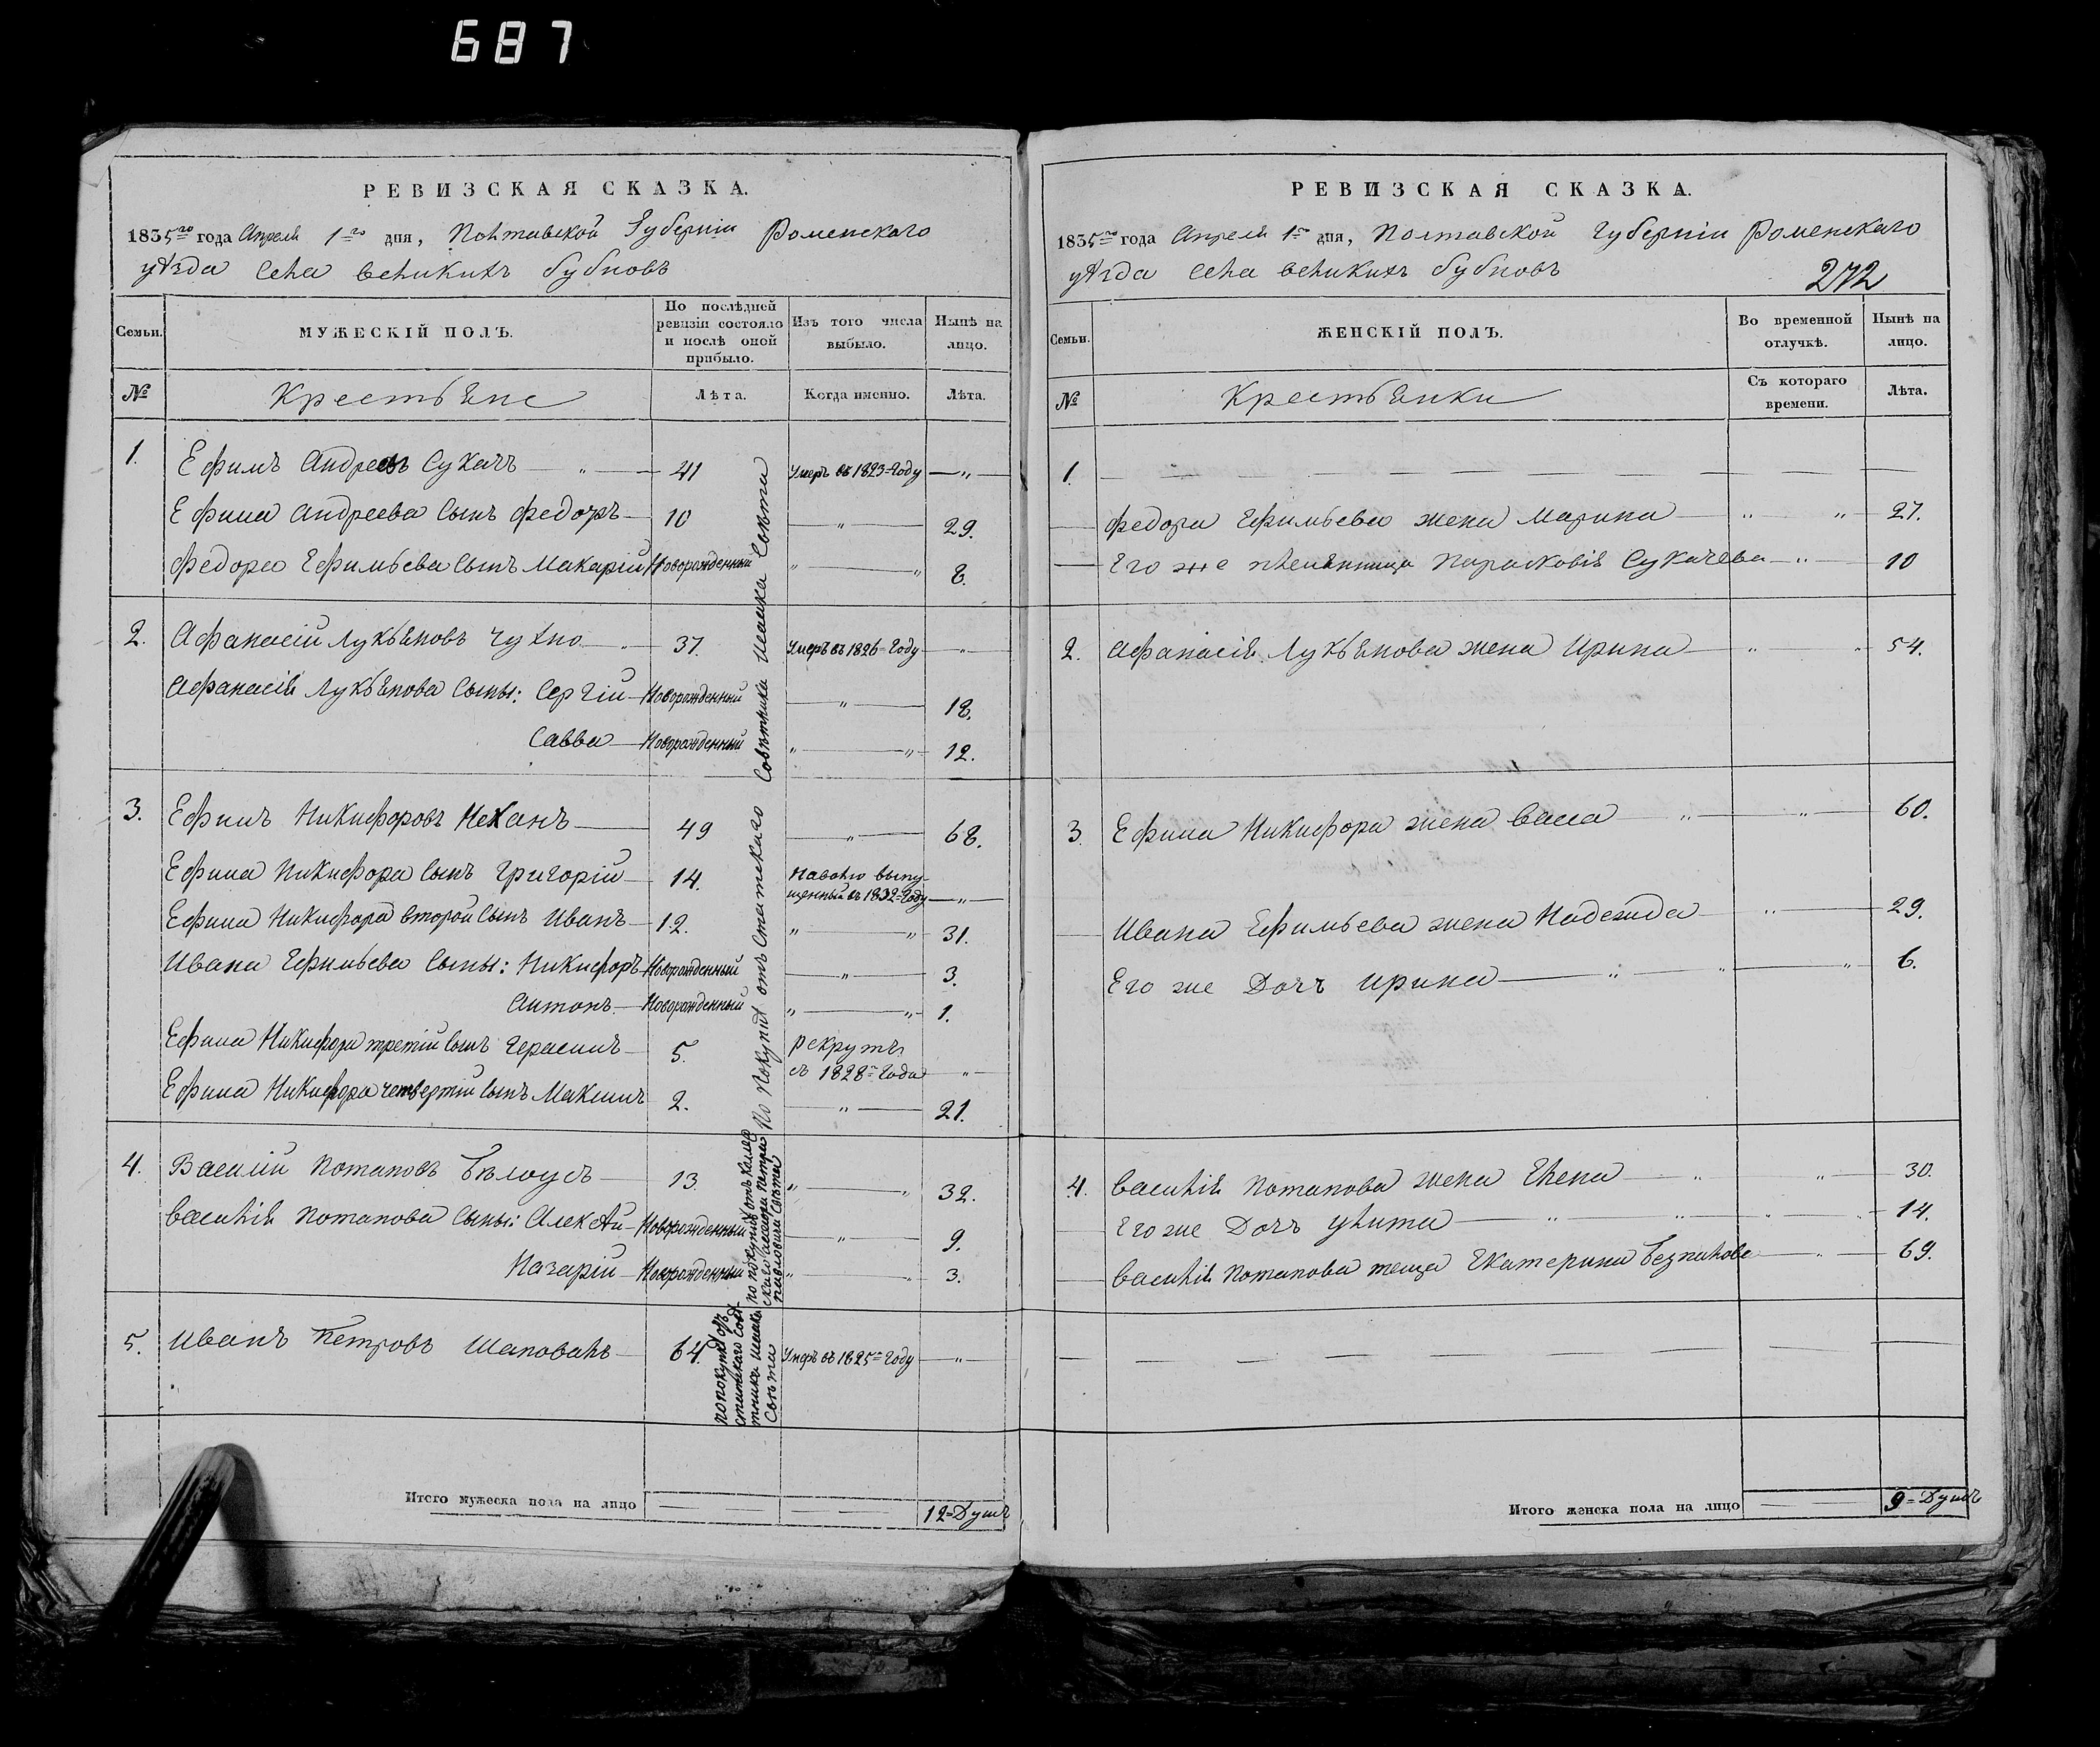 687
РЕВИЗСКАЯ СКАЗКА.
1835го года Апреля 1го дня, Полтавской Губерніи Роменского
уѣзда Села Великихъ бубновъ
Семьи.
МУЖЕСКІЙ ПОЛЪ.
По послѣдней ревизіи состояло и послѣ оной прибыло.
Изъ того числа выбыло.
Нынѣ на лицо.
№
Крестьяне
Лѣта.
Когда именно.
Лѣта.
1. Ефимъ Андреевъ Сукачъ — 41 Умеръ въ 1823= Году — „ —
Ефима Андреева Сынъ Федоръ — 10 — „ — 29.
Федора Ефимьева Сынъ Макарій Новорожденный „ — „ 8.
2. Афанасій Лукьяновъ Чухно — 37. Умеръ въ 1826= Году — „ —
Афанасія Лукьянова Сыны: Сергій — Новорожденный — „ — 18.
Савва — Новорожденный „ — „ 12.
3. Ефимъ Никифоровъ Нехаnъ — 49 — „ — 68.
Ефима Никифора Сынъ Григорій — 14. Наволю выпу-
щенный въ 1832= Году — „ —
Ефима Никифора второй Сынъ Иванъ — 12. „ — „ 31.
Ивана Ефимьева Сыны: Никифоръ — Новорожденный — „ — 3.
Антонъ. — Новорожденный „ — „ 1.
Ефима Никифора третій Сынъ Герасимъ — 5. рекрутъ
съ 1828= Года — „ —
Ефима Никифора четвертій Сынъ Максимъ 2. — „ — 21.
4. Василій Потаповъ Бѣлоусъ — 13. „ — „ 32.
Василія Потапова Сыны: Алексѣй — Новорожденный — „ — 9.
Назарій — Новорожденный „ — „ 3.
5. Иванъ Петровъ Шаповалъ — 64. Умеръ въ 1825= Году — „ —
По Покупкѣ отъ Статскаго Совѣтника Ивана
по покупкѣ отъ
Итого мужеска пола на лицо — — 12=Душъ
РЕВИЗСКАЯ СКАЗКА.
1835го года Апреля 1го дня, Полтавской Губерніи Роменского
уѣзда Села Великихъ бубновъ
272
Семьи.
ЖЕНСКІЙ ПОЛЪ.
Во временной отлучкѣ.
Нынѣ на лицо.
№
Крестьянки
Съ котораго времени.
Лѣта.
1. — — — — —
Федора Ефимьева жена Марина — „ „ — 27.
Его же племянница Парасковія Сукачева — „ — 10
2. Афанасія Лукьянова жена Ирина — „ „ 54.
3. Ефима Никифора жена Васса „ — „ — 60.
Ивана Ефимьева жена Надежда — „ — 29.
Его же Дочъ Ирина — „ — „ — „ — 6.
4. Василія Потапова жена Елена — „ — „ — 30.
Его же Дочъ Улита — „ — „ — „ — „ 14.
Василія Потапова теща Екатерина — „ — 69.
— — — — —
Итого женска пола на лицо — — 9=Душъ